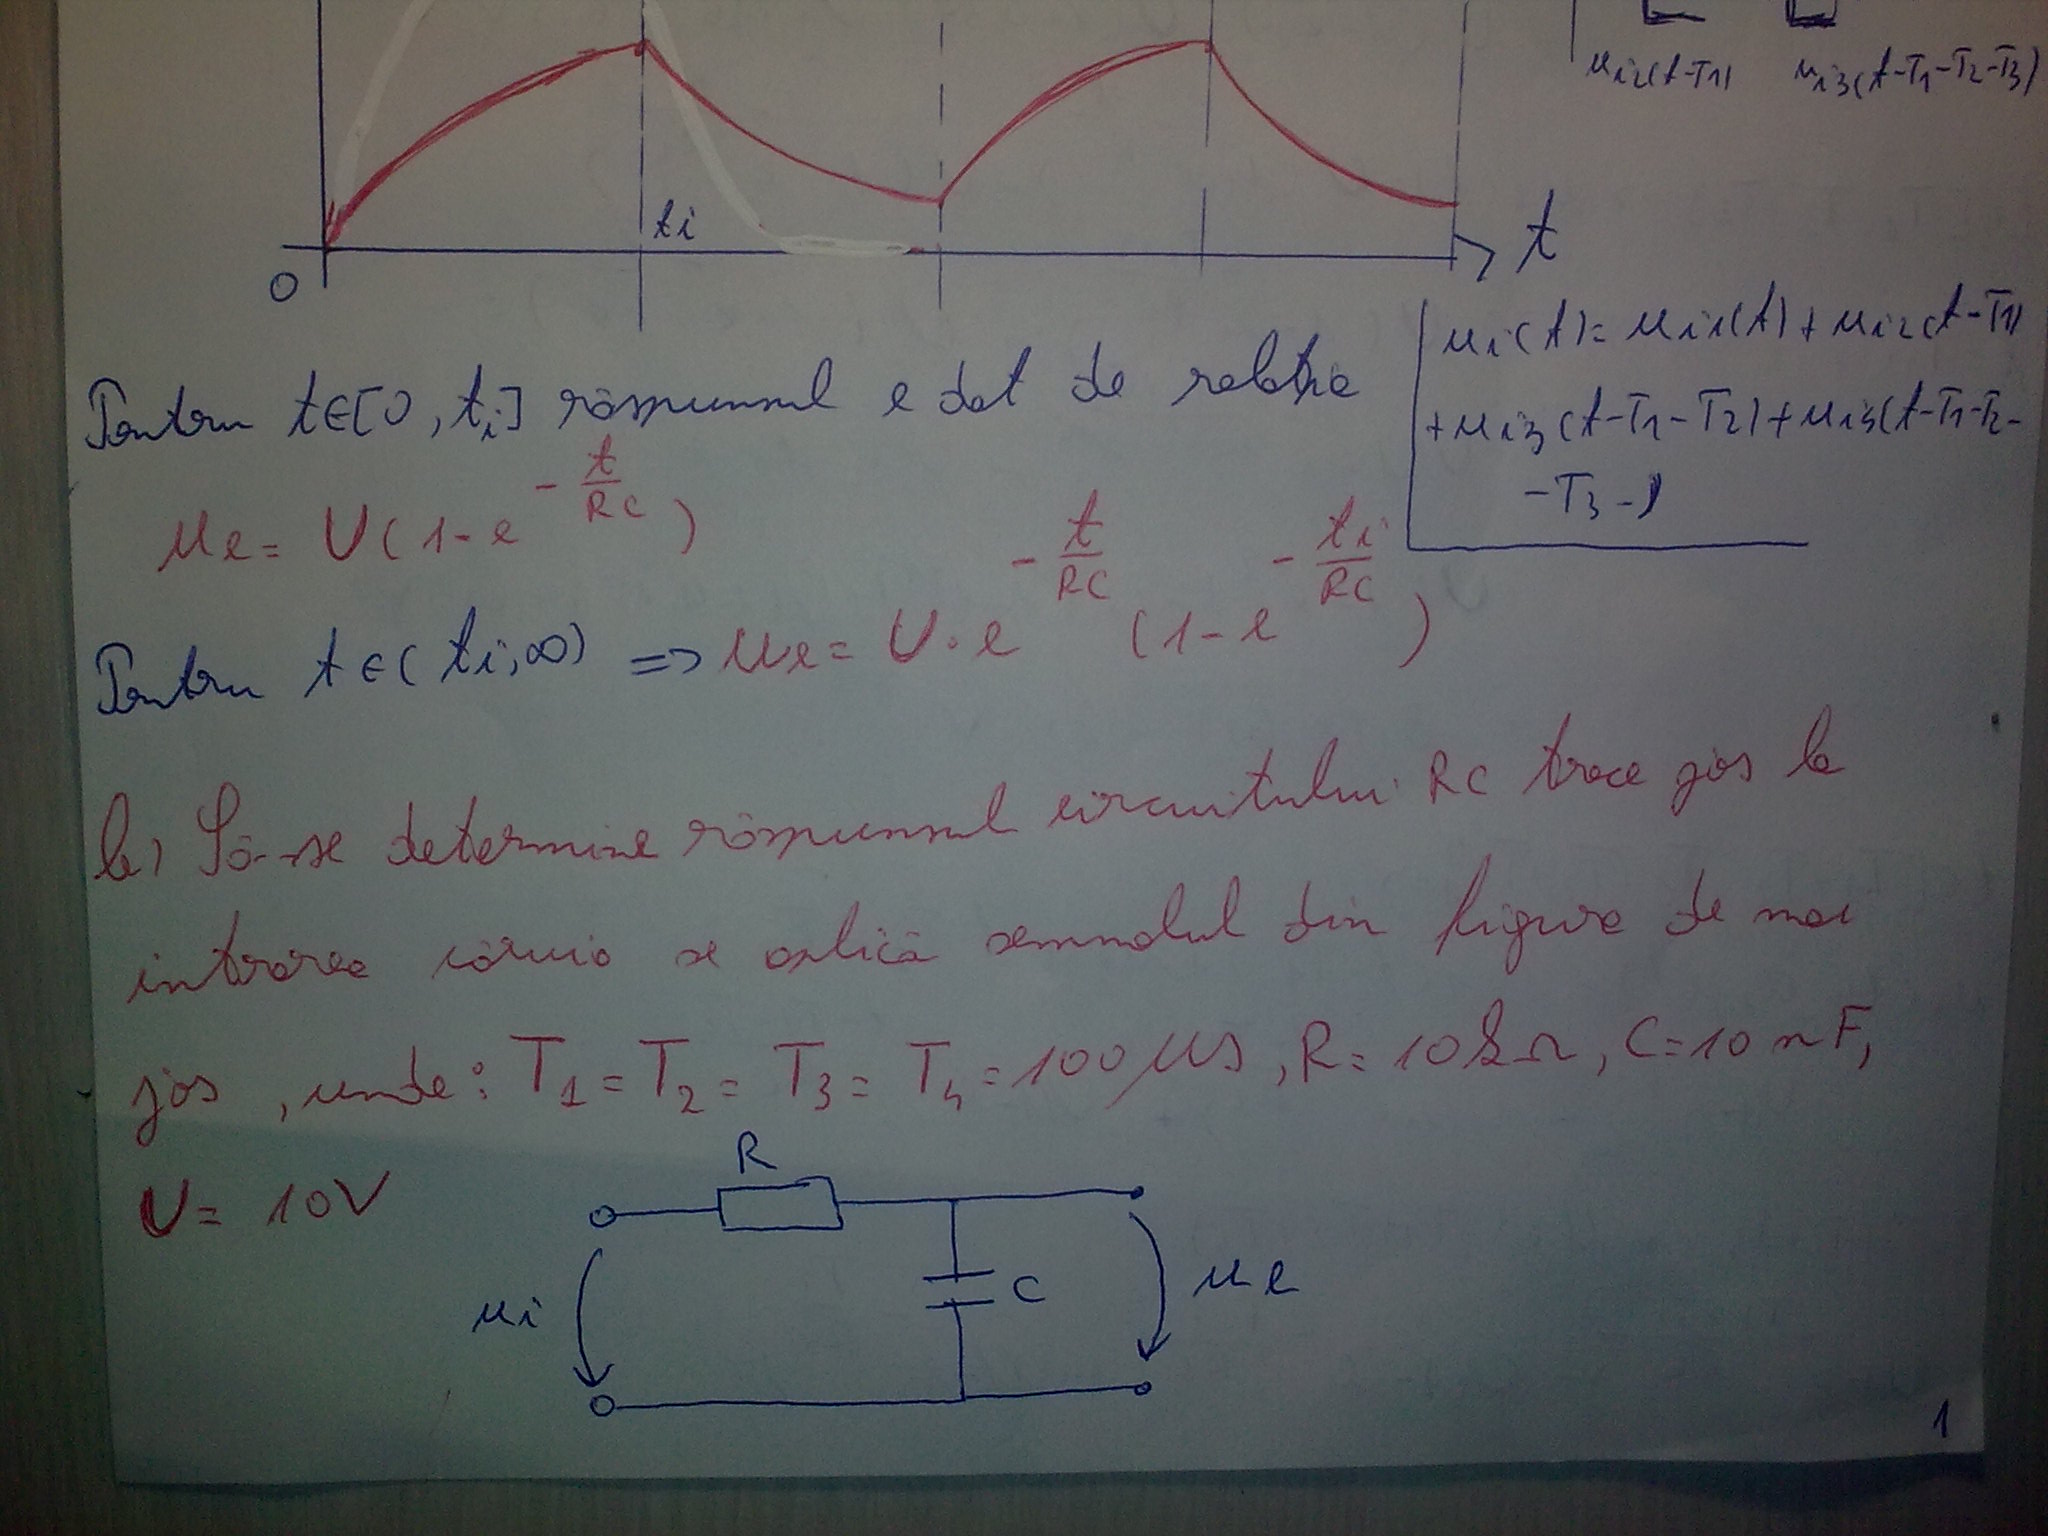 ui2(t-T1) ui3(t-T1-T2-T3)
ti
t
0
ui(t)= ui1(t)+ui2(t-T1)
+ui3(t-T1-T2)+ui3(t-T1-T2-
-T3-)
Pentru t∈[0,ti] răspunsul e dat de relația
ue= U(1-e^-t/RC)
Pentru t∈(ti,∞) => ue= U·e^-t/RC (1-e^-ti/RC)
b) Să-se determine răspunsul circuitului RC trece jos la
intrarea căruia se aplică semnalul din figura de mai
jos, unde: T1=T2=T3=T4=100μs, R=10kΩ, C=10nF,
U= 10V
R
C
ui
ue
1